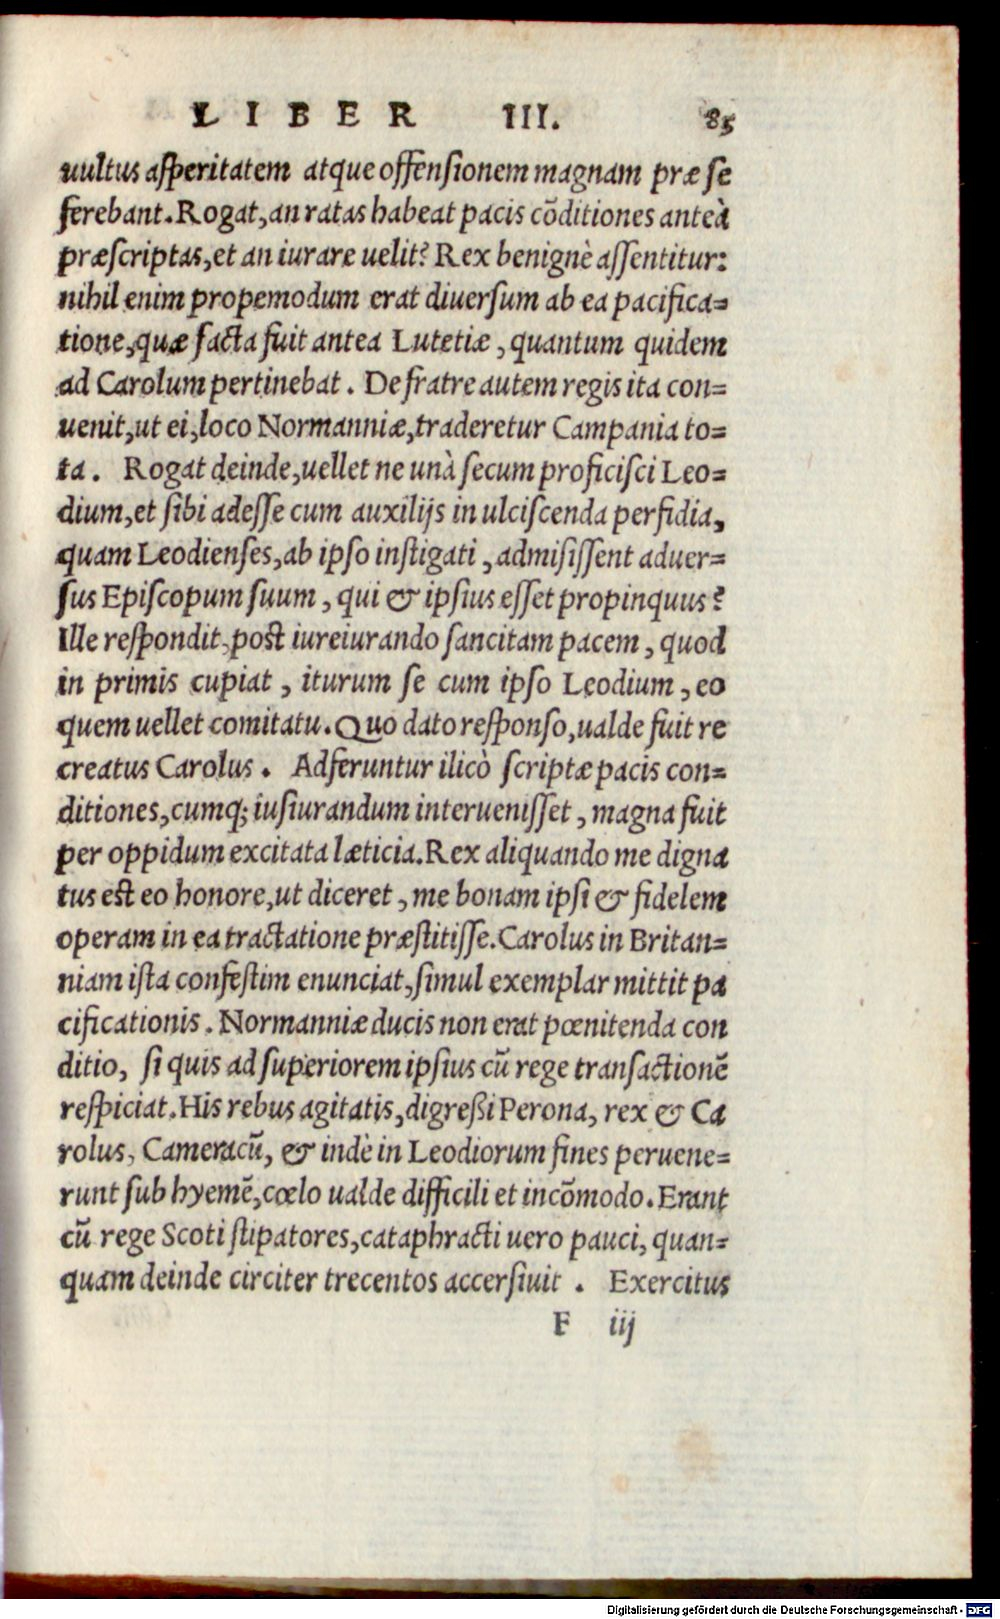 LIBER III. 85
uultus asperitatem atque offensionem magnam præ se
ferebant. Rogat, an ratas habeat pacis cõditiones anteà
præscriptas, et an iurare uelit? Rex benignè assentitur:
nihil enim propemodum erat diuersum ab ea pacifica=
tione, quæ facta fuit antea Lutetiæ, quantum quidem
ad Carolum pertinebat. De fratre autem regis ita con=
uenit, ut ei, loco Normanniæ, traderetur Campania to=
ta. Rogat deinde, uellet ne unà secum proficisci Leo=
dium, et sibi adesse cum auxilijs in ulciscenda perfidia,
quam Leodienses, ab ipso instigati, admisissent aduer=
sus Episcopum suum, qui & ipsius esset propinquus?
Ille respondit, post iureiurando sancitam pacem, quod
in primis cupiat, iturum se cum ipso Leodium, eo
quem uellet comitatu. Quo dato responso, ualde fuit re
creatus Carolus. Adferuntur ilicò scriptæ pacis con=
ditiones, cumq; iusiurandum interuenisset, magna fuit
per oppidum excitata læticia. Rex aliquando me digna
tus est eo honore, ut diceret, me bonam ipsi & fidelem
operam in ea tractatione præstitisse. Carolus in Britan=
niam ista confestim enunciat, simul exemplar mittit pa
cificationis. Normanniæ ducis non erat pœnitenda con
ditio, si quis ad superiorem ipsius cũ rege transactionẽ
respiciat. His rebus agitatis, digreßi Perona, rex & Ca
rolus, Cameracũ, & indè in Leodiorum fines peruene=
runt sub hyemẽ, cœlo ualde difficili et incõmodo. Erant
cũ rege Scoti stipatores, cataphracti uero pauci, quan=
quam deinde circiter trecentos accersiuit. Exercitus
F iij
Digitalisierung gefördert durch die Deutsche Forschungsgemeinschaft - DFG